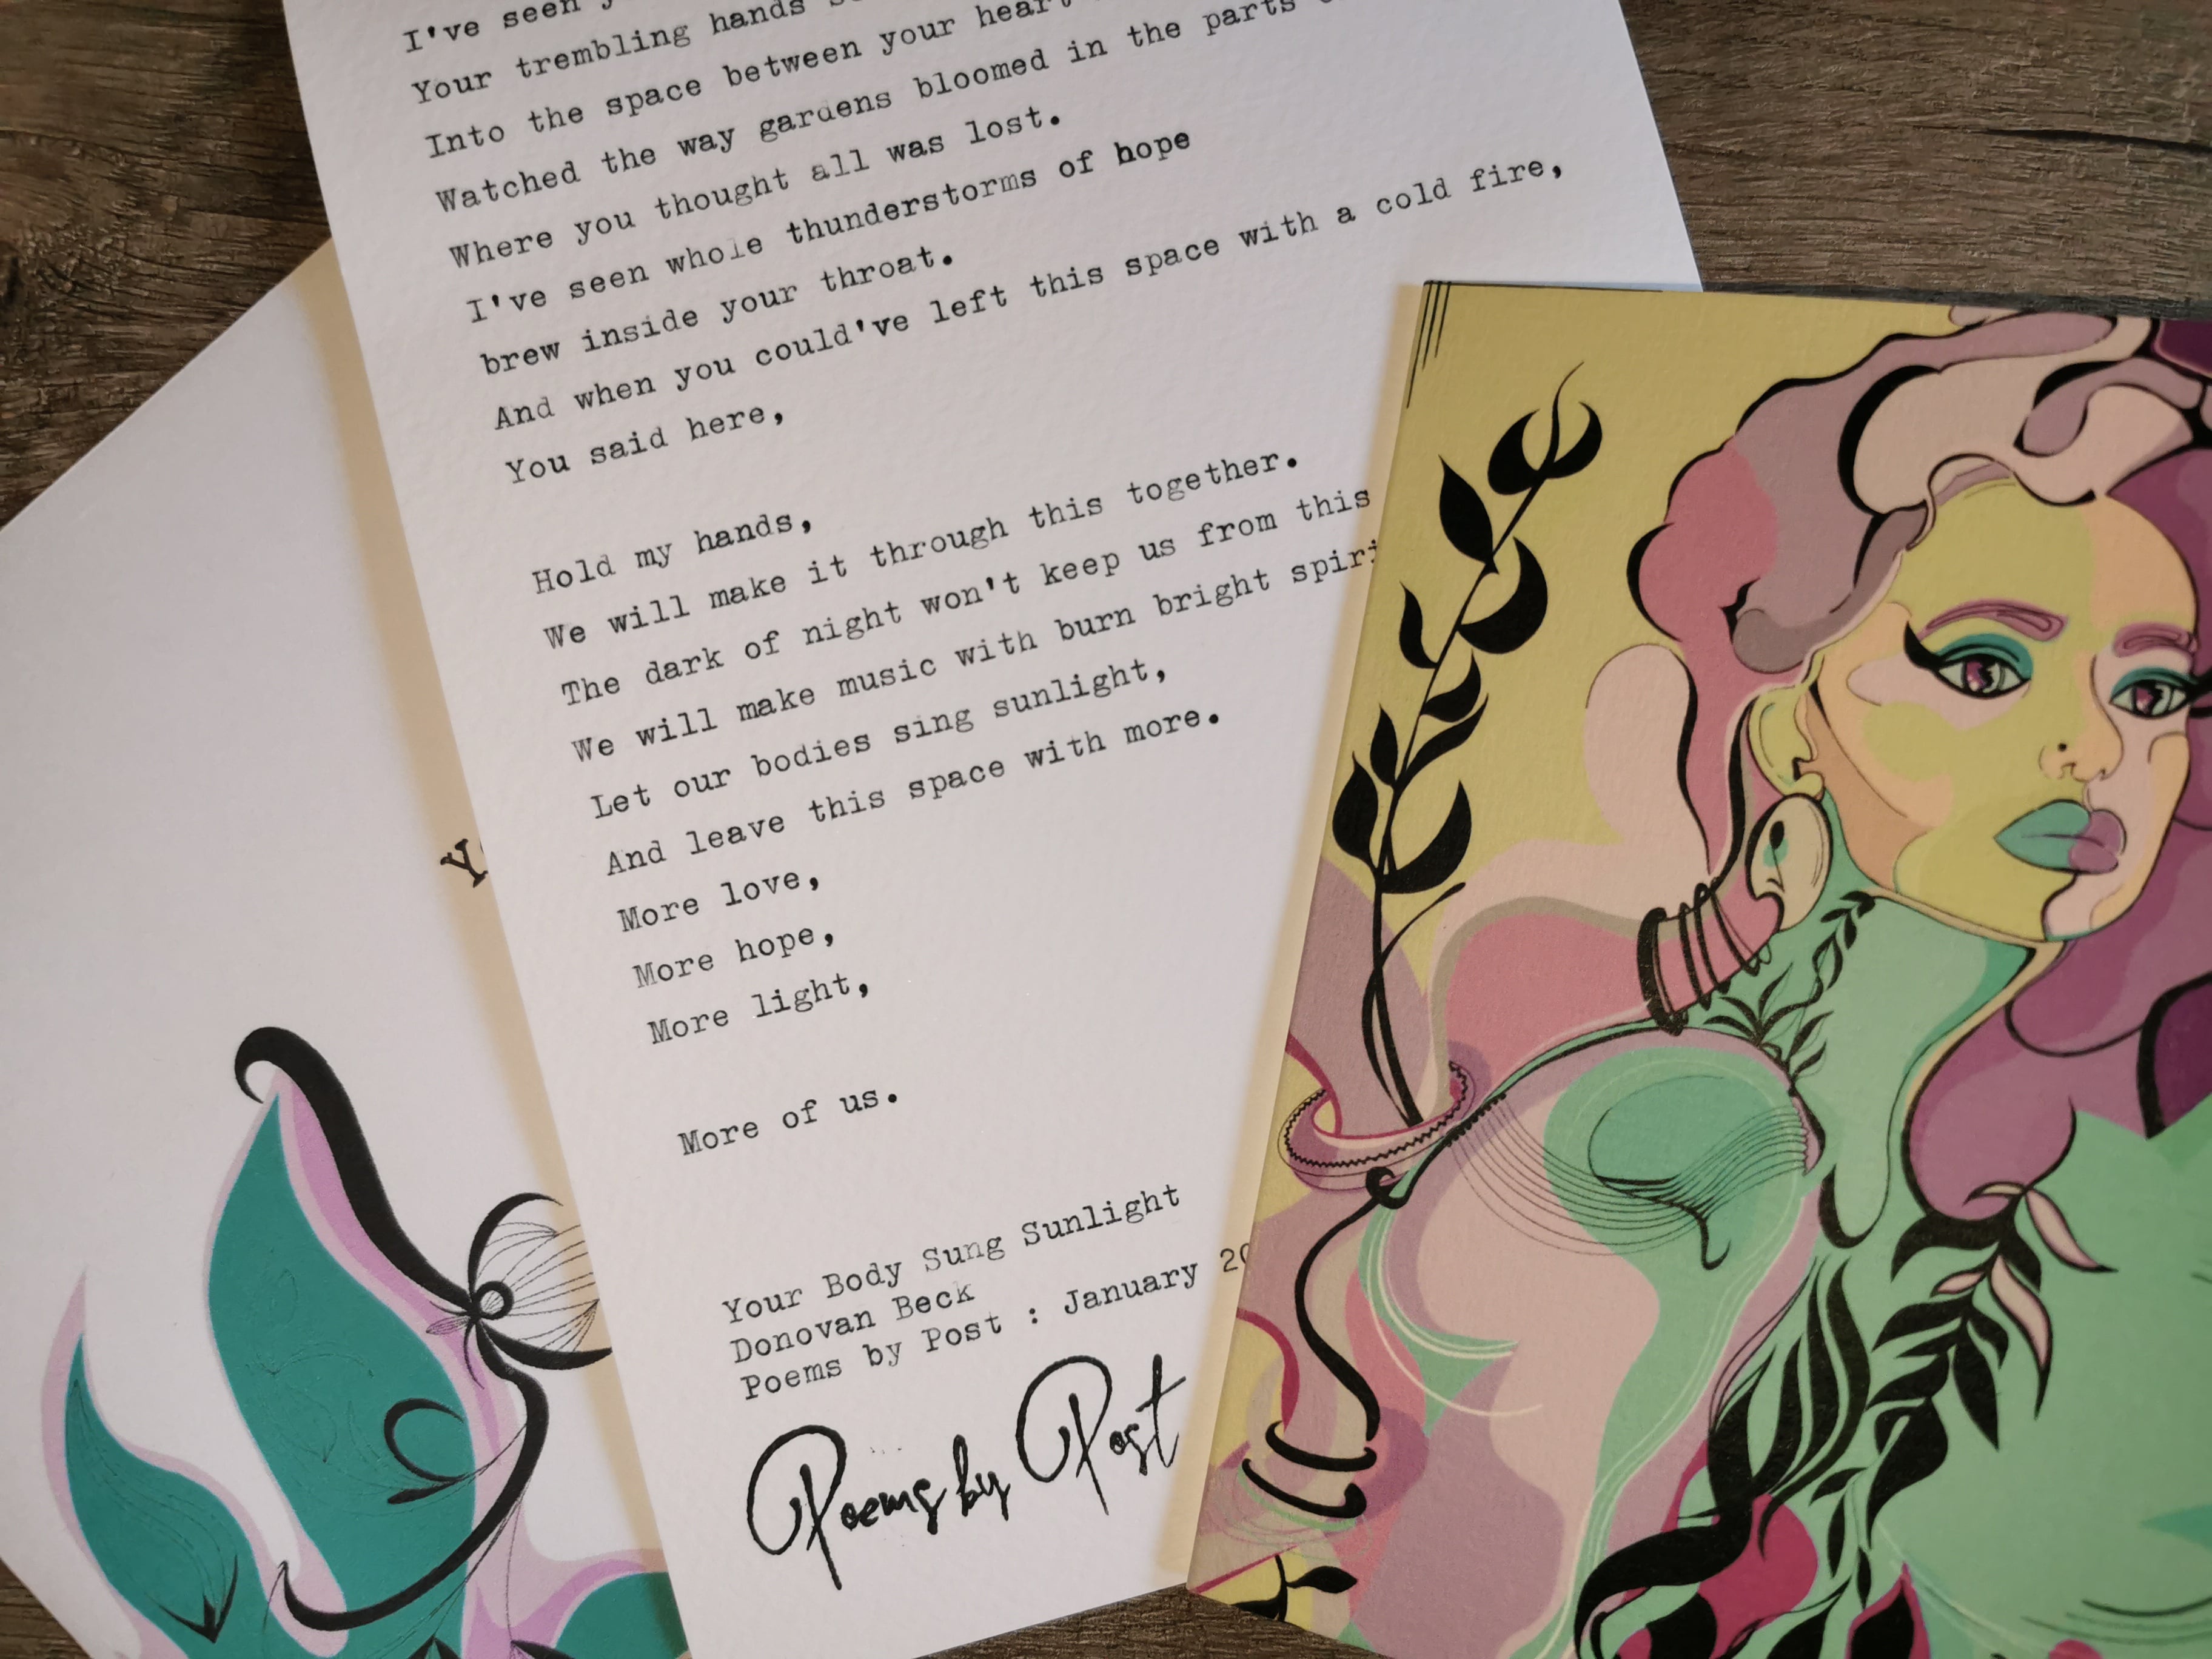 I've seen
Your trembling hands
Into the space between your heart
Watched the way gardens bloomed in the parts
Where you thought all was lost.
I've seen whole thunderstorms of hope
brew inside your throat.
And when you could've left this space with a cold fire,
You said here,
Hold my hands,
We will make it through this together.
The dark of night won't keep us from this
We will make music with burn bright
Let our bodies sing sunlight,
And leave this space with more.
More love,
More hope,
More light,
More of us.
Your Body Sung Sunlight
Donovan Beck
Poems by Post : January
Poems by Post